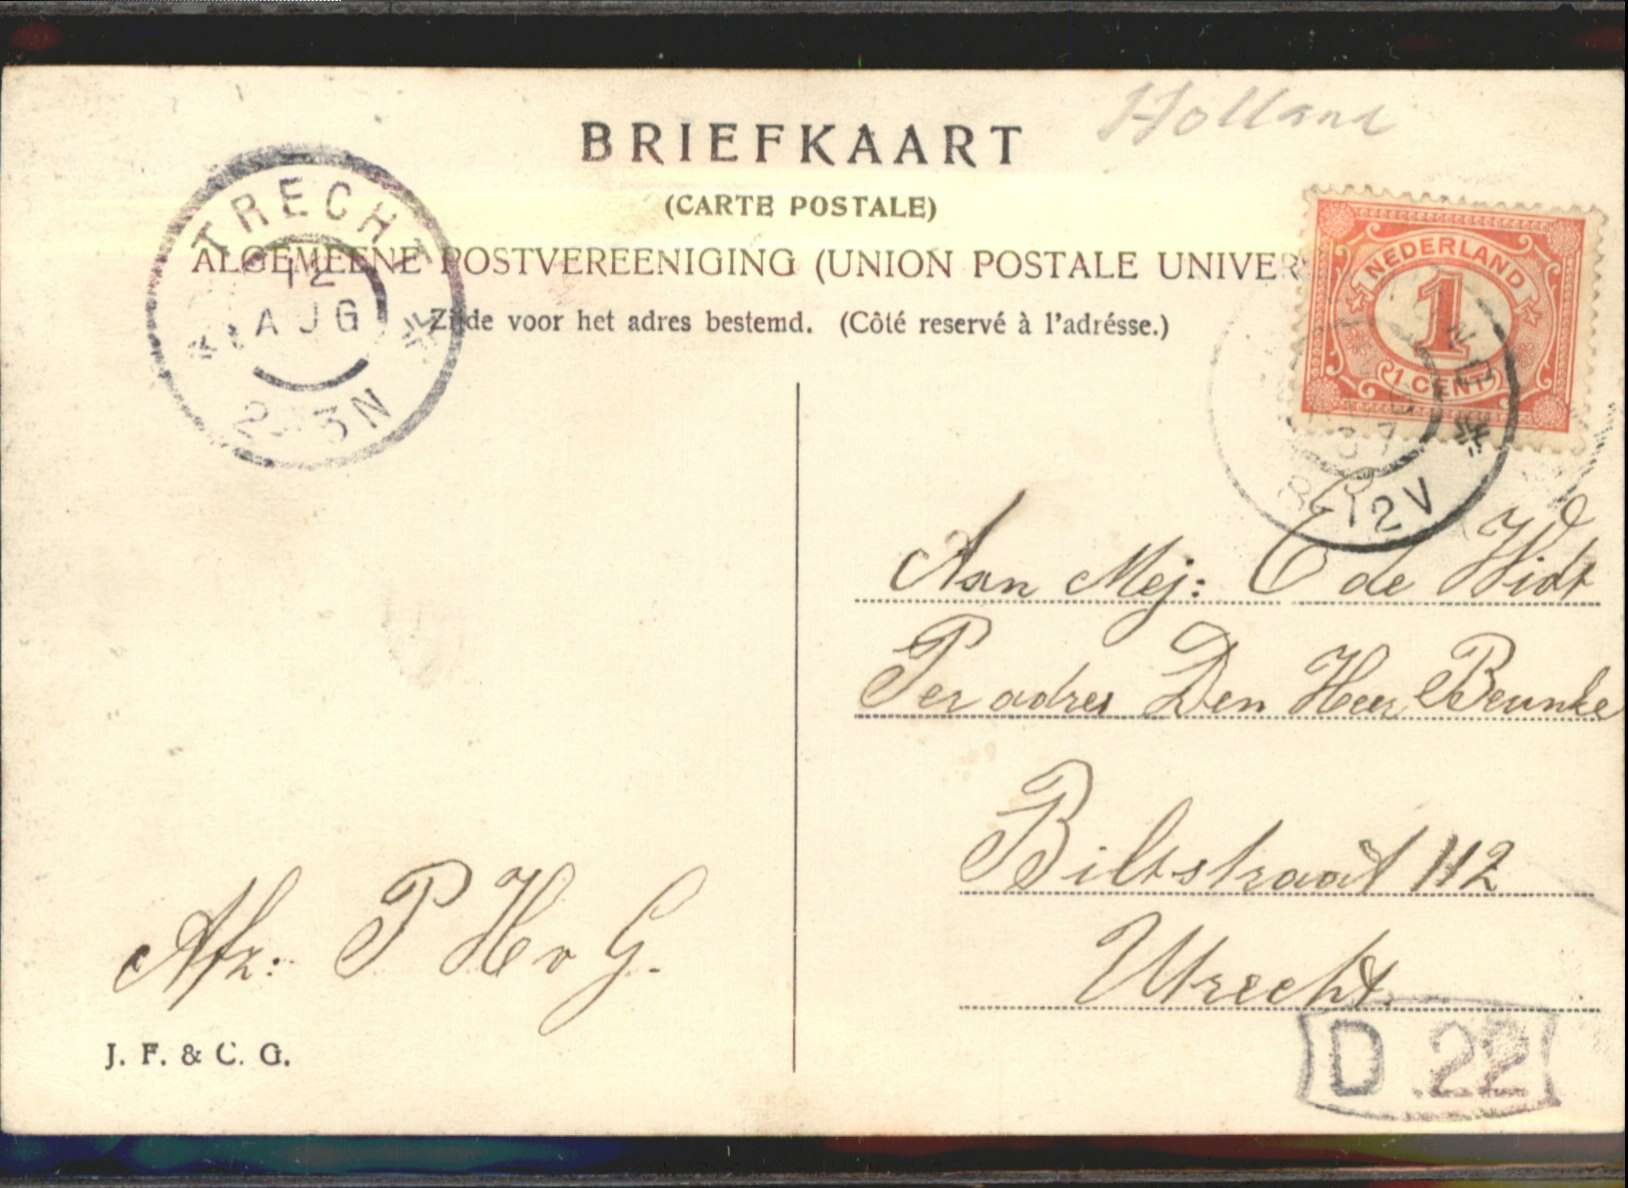 Holland
BRIEFKAART
(CARTE POSTALE)
ALGEMEENE POSTVEREENIGING (UNION POSTALE UNIVER
Zijde voor het adres bestemd. (Côté reservé à l'adrésse.)
TRECHT
12
AUG
2-3N
NEDERLAND
1
1 CENT
12V
Aan Mej: C de Widt
Per adres Den Heer Beunke
Biltstraat 112
Utrecht.
Afz: P H v G.
J. F. & C. G.
D 22